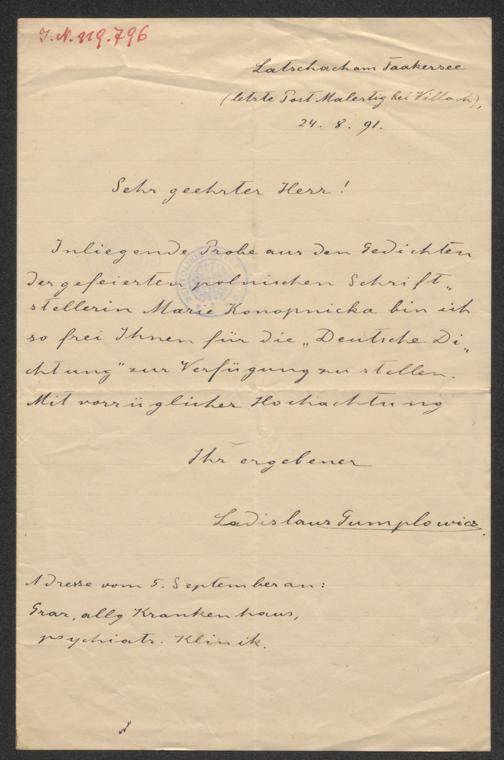 J. N. 119.796
Latschach am Faakersee
(letzte Post Malestig bei Villach),
24. 8. 91.
Sehr geehrter Herr!
Inliegende Probe aus den Gedichten
der gefeierten polnischen Schrift„
stellerin Marie Konopnicka bin ich
so frei Ihnen für die „Deutsche Di„
chtung" zur Verfügung zu stellen.
Mit vorzüglicher Hochachtung
Ihr ergebener
Ladislaus Gumplowicz.
Adresse vom 5. September an:
Graz, allg Krankenhaus,
psychiatr. Klinik.